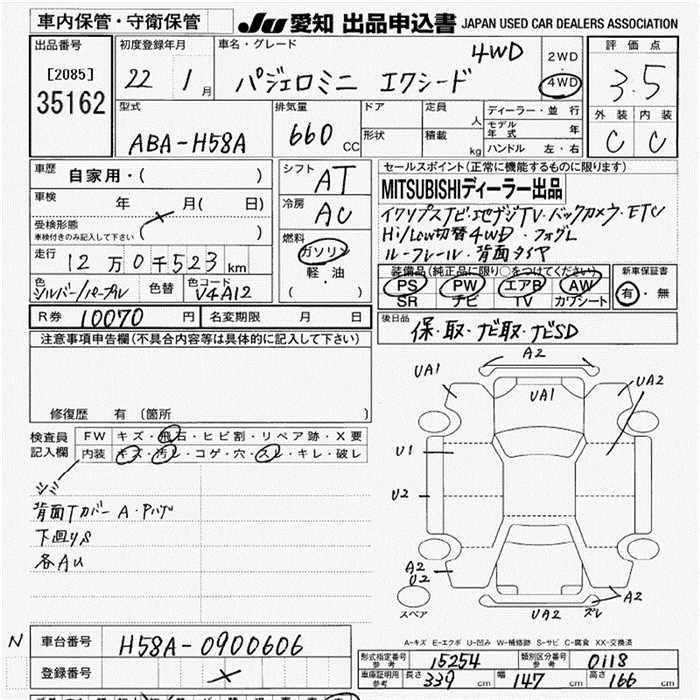 車内保管・守衛保管
JU 愛知 出品申込書 JAPAN USED CAR DEALERS ASSOCIATION
出品番号
[2085]
35162
初度登録年月
22 1月
車名・グレード
4WD
パジェロミニ エクシード
2WD
・
4WD
評価点
3.5
外装 内装
C C
型式
ABA-H58A
排気量
660 CC
ドア
形状
定員
人
積載
kg
ディーラー・並行
モデル年式 年
ハンドル 左・右
車歴
自家用・( )
車検
年 月( 日)
受検形態
車検付きのみ記入して下さい
走行
12万0千523km
色
シルバー/パープル
色替
色コード
V4A12
シフト
AT
冷房
AC
燃料
ガソリン
軽・油
( )
セールスポイント(正常に機能するものに限ります)
MITSUBISHIディーラー出品
イクリプスナビ・地デジTV・バックカメラ・ETC
Hi/Low切替4WD・フォグL
ルーフレール・背面タイヤ
装備品(純正品に限り○をつけてください)
PS PW エアB AW
SR ナビ TV カワシート
新車保証書
有・無
R券 10070円
名変期限 月 日
後日品
保・取・ナビ取・ナビSD
注意事項申告欄(不具合内容等は具体的に記入して下さい)
修復歴 有(箇所 )
検査員
記入欄
FW キズ・飛石・ヒビ割・リペア跡・X要
内装 キズ・汚レ・コゲ・穴・スレ・キレ・破レ
シミ
背面Tカバー A・
下回りS
各AU
A2
UA1
UA1
UA2
U1
U2
A2
U2
A2
UA2
ズレ
スペア
A-キズ E-エクボ U-凹み W-補修跡 S-サビ C-腐食 XX-交換済
N
車台番号
H58A-0900606
登録番号
型式指定番号
参考
15254
類別区分番号
参考
0118
車庫証明用
参考
長さ 339cm
幅 147cm
高さ 166cm